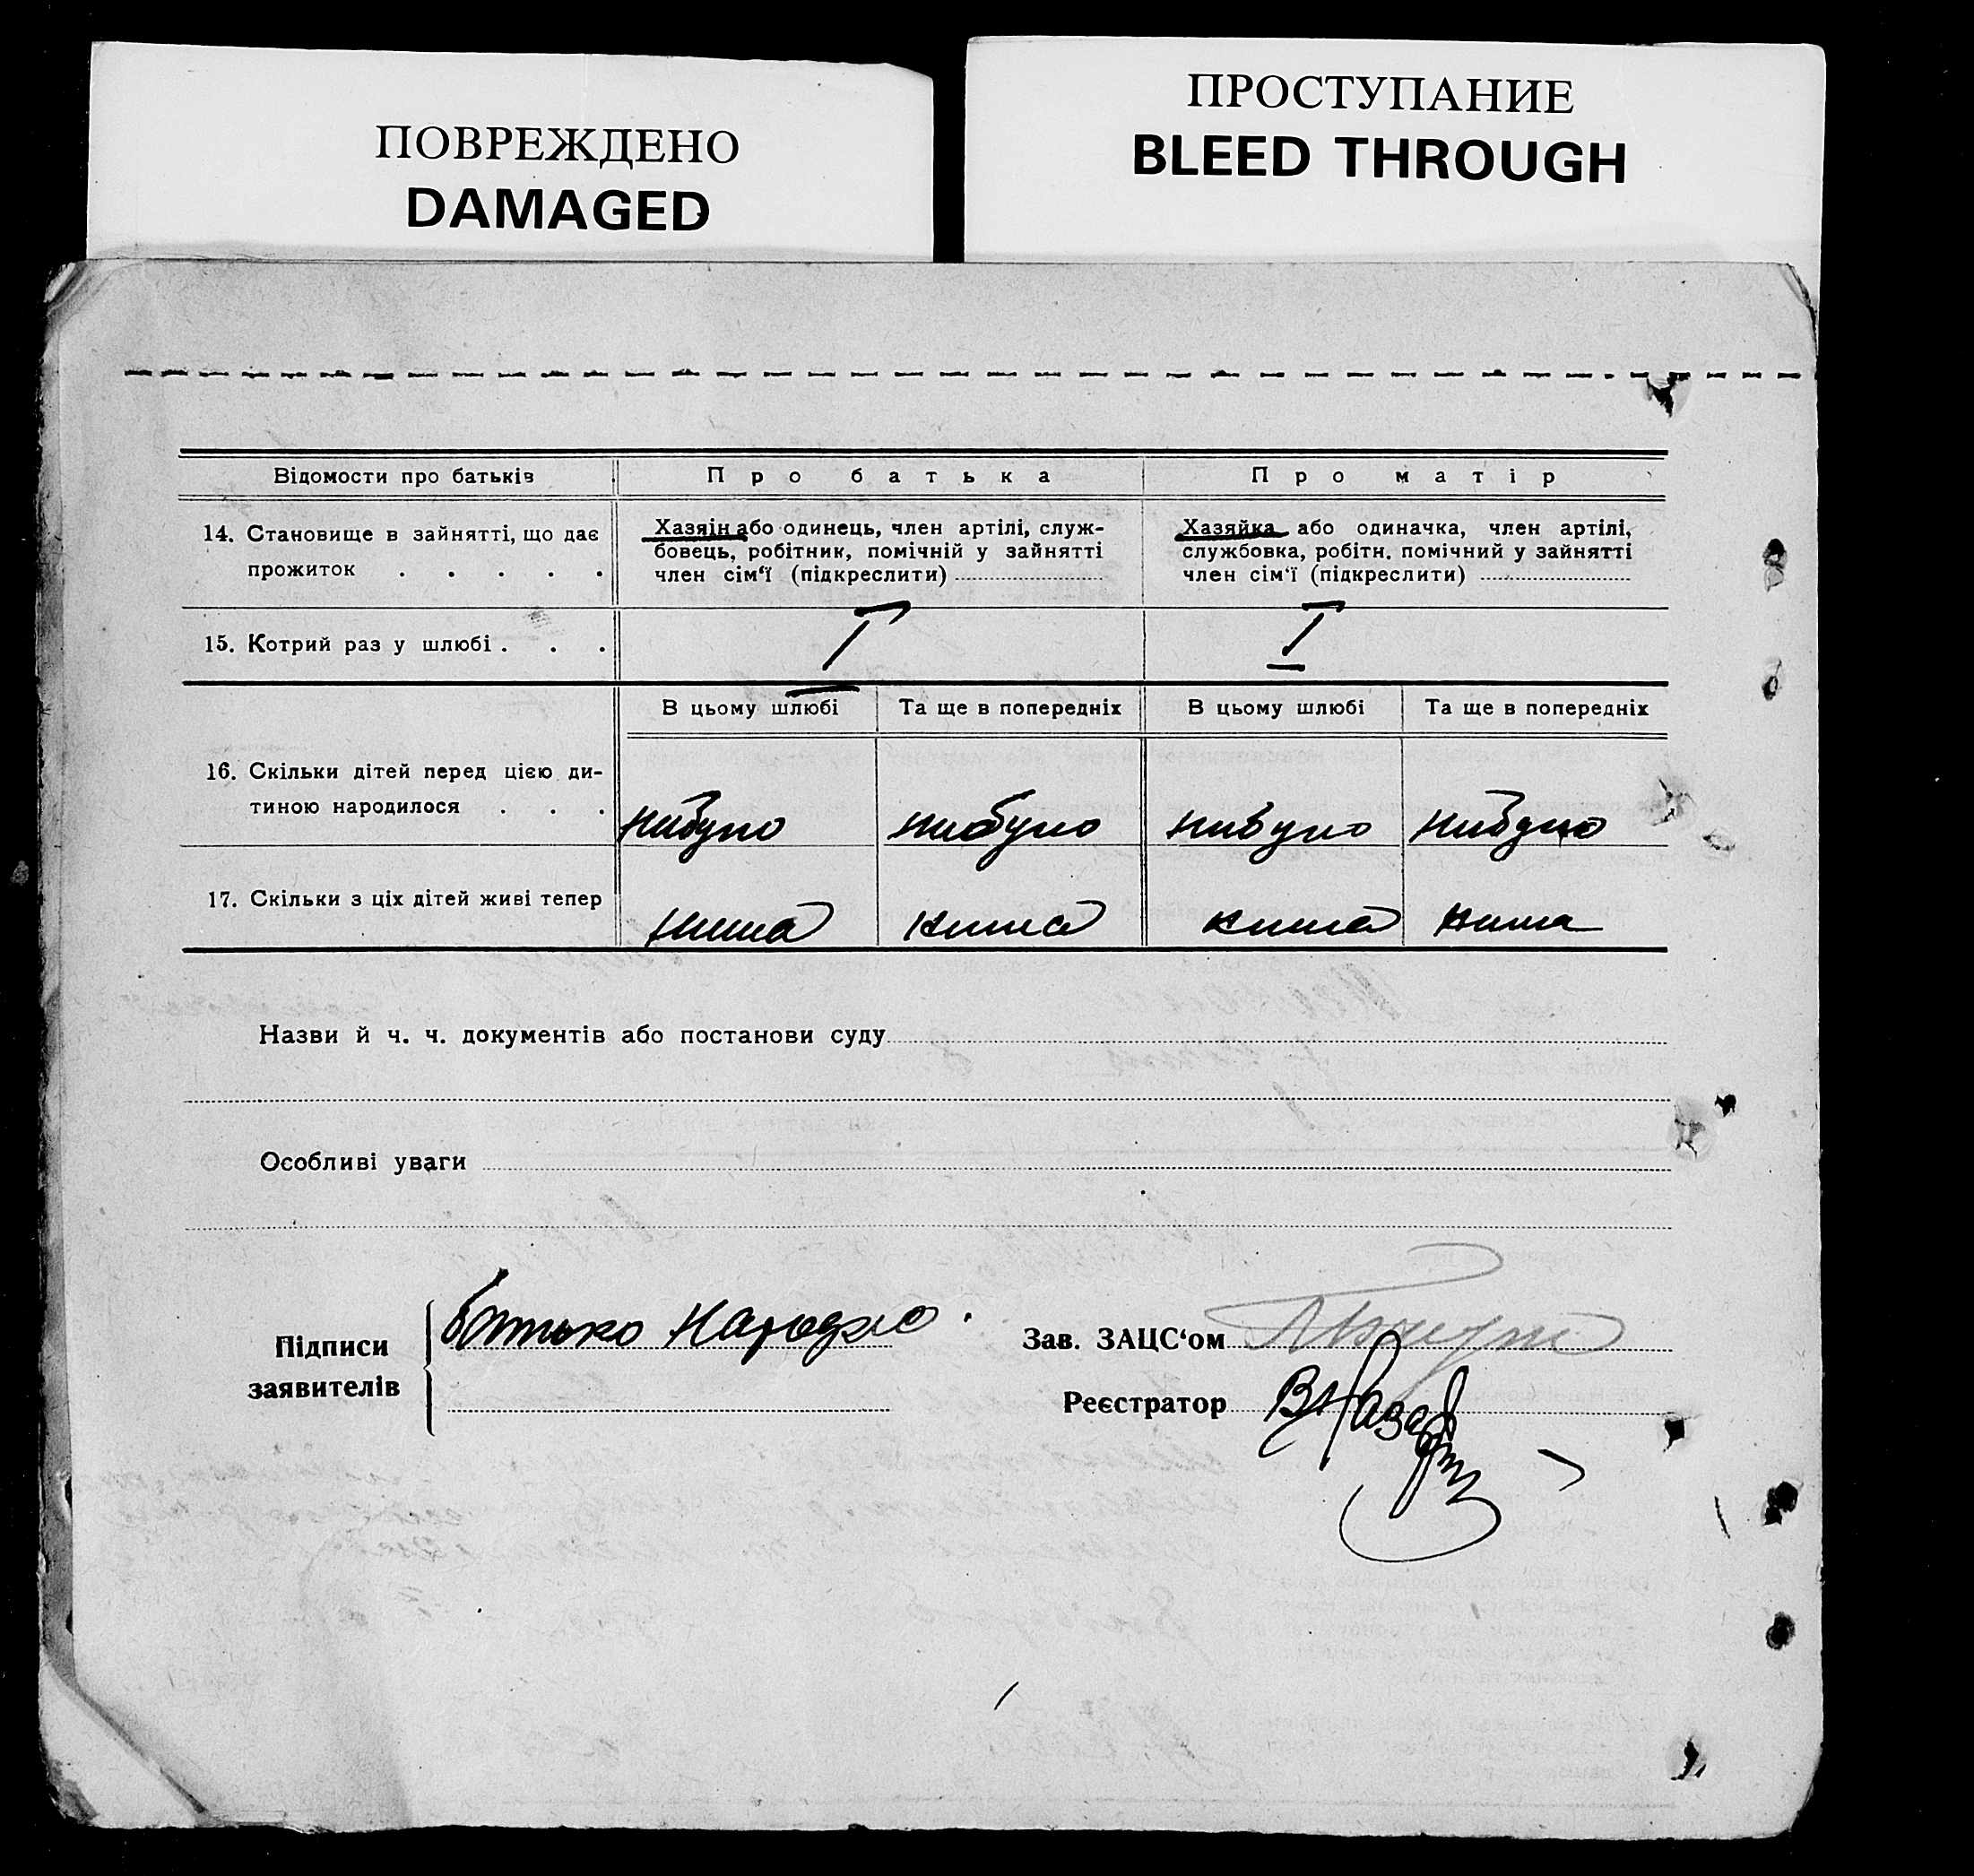 ПОВРЕЖДЕНО
DAMAGED
ПРОСТУПАНИЕ
BLEED THROUGH
Відомости про батьків
Про батька
Про матір
14. Становище в зайнятті, що дає
прожиток . . . . .
Хазяін або одинець, член артілі, служ-
бовець, робітник, помічній у зайнятті
член сім‘ї (підкреслити)
Хазяйка або одиначка, член артілі,
службовка, робітн. помічний у зайнятті
член сім‘ї (підкреслити)
15. Котрий раз у шлюбі . . .
I
I
В цьому шлюбі
Та ще в попередніх
В цьому шлюбі
Та ще в попередніх
16. Скільки дітей перед цією ди-
тиною народилося . . .
нибуло
нибуло
нибуло
нибуло
17. Скільки з ціх дітей живі тепер
нима
нима
нима
нима
Назви й ч. ч. документів або постанови суду
Особливі уваги
Підписи
заявителів
батько
Зав. ЗАЦС‘ом
Реєстратор